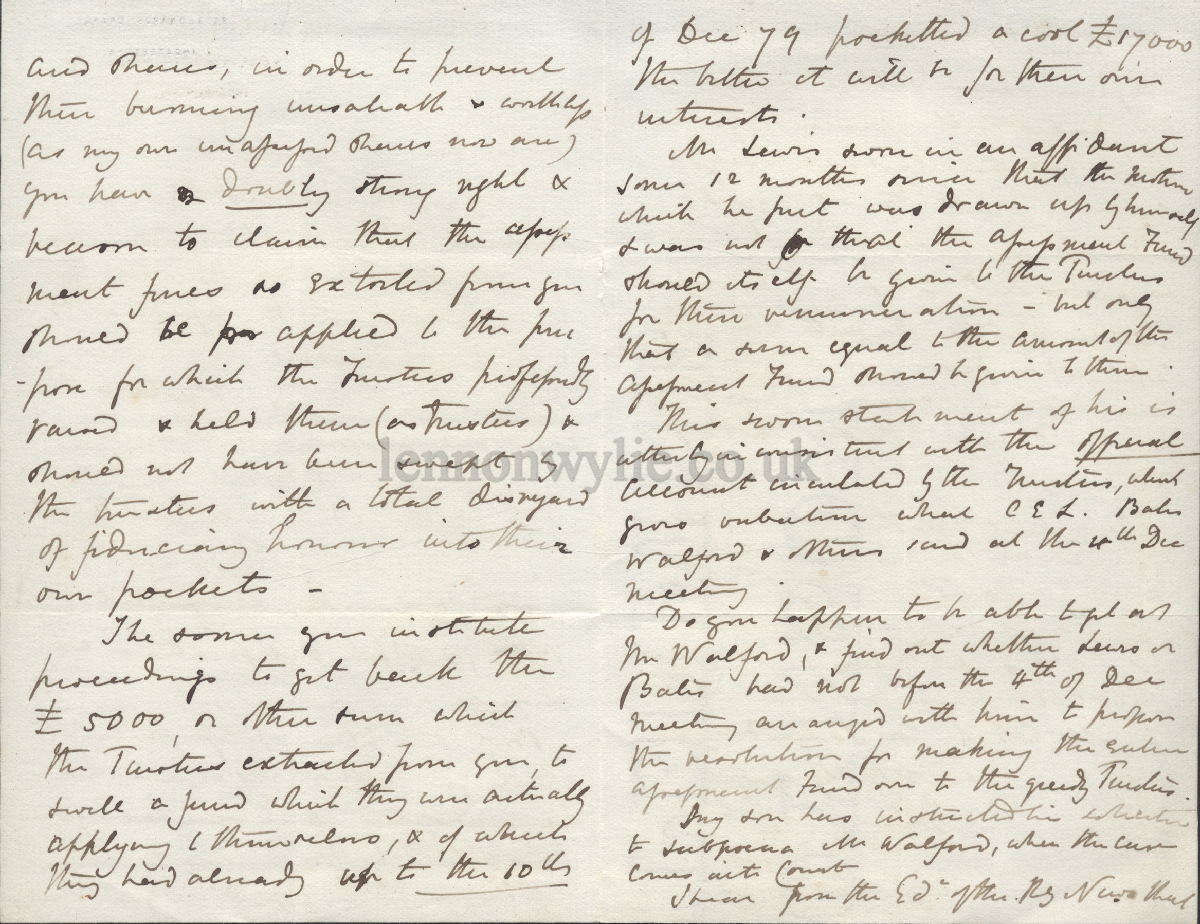 and shares, in order to prevent
their becoming unsaleable & worthless
(as my own unassessed shares now are)
you have a doubly strong right &
reason to claim that the assess
ment fines so extorted from you
should be applied to the pur
-pose for which the Trustees professedly
raised & held them (as Trustees) &
should not have been swept by
the trustees with a total disregard
of fiduciary honour into their
own pockets -
The sooner you institute
proceedings to get back the
£5000, or other sum which
the Trustees extracted from you, to
swell a fund which they were actually
applying to themselves, & of which
they had already up to the 10th
of Dec 79 pocketted a cool £17000
the better it will be for their own
interests.
Mr Lewis swore in an affidavit
some 12 months since that the motion
which he put was drawn up by himself
& was not that the Assessment Fund
should itself be given to the Trustees
for their remuneration - but only
that a sum equal to the amount of the
Assessment Fund should be given to them.
This sworn statement of his is
utterly inconsistent with the official
account circulated by the Trustees, which
gives verbatim what C E L. Bates
Walford & others said at the 4th Dec
meeting
Do you happen to be able to get at
Mr Walford, & find out whether Lewis or
Bates had not before the 4th of Dec
meeting arranged with him to propose
the resolution for making the entire
assessment Fund over to the greedy Trustees.
My son has instructed his solicitor
to subpoena Mr Walford, when the case
comes into Court
I hear from the Edr of the Ry News that
lennonwylie.co.uk